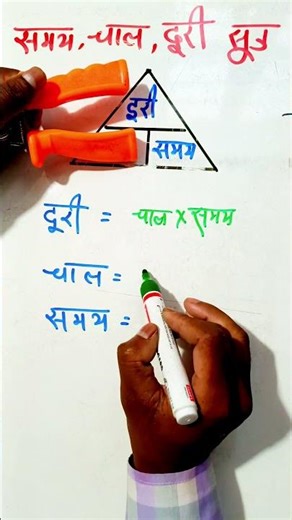 समय, चाल, दूरी सूत्र
दूरी
समय
दूरी = चाल x समय
चाल =
समय =